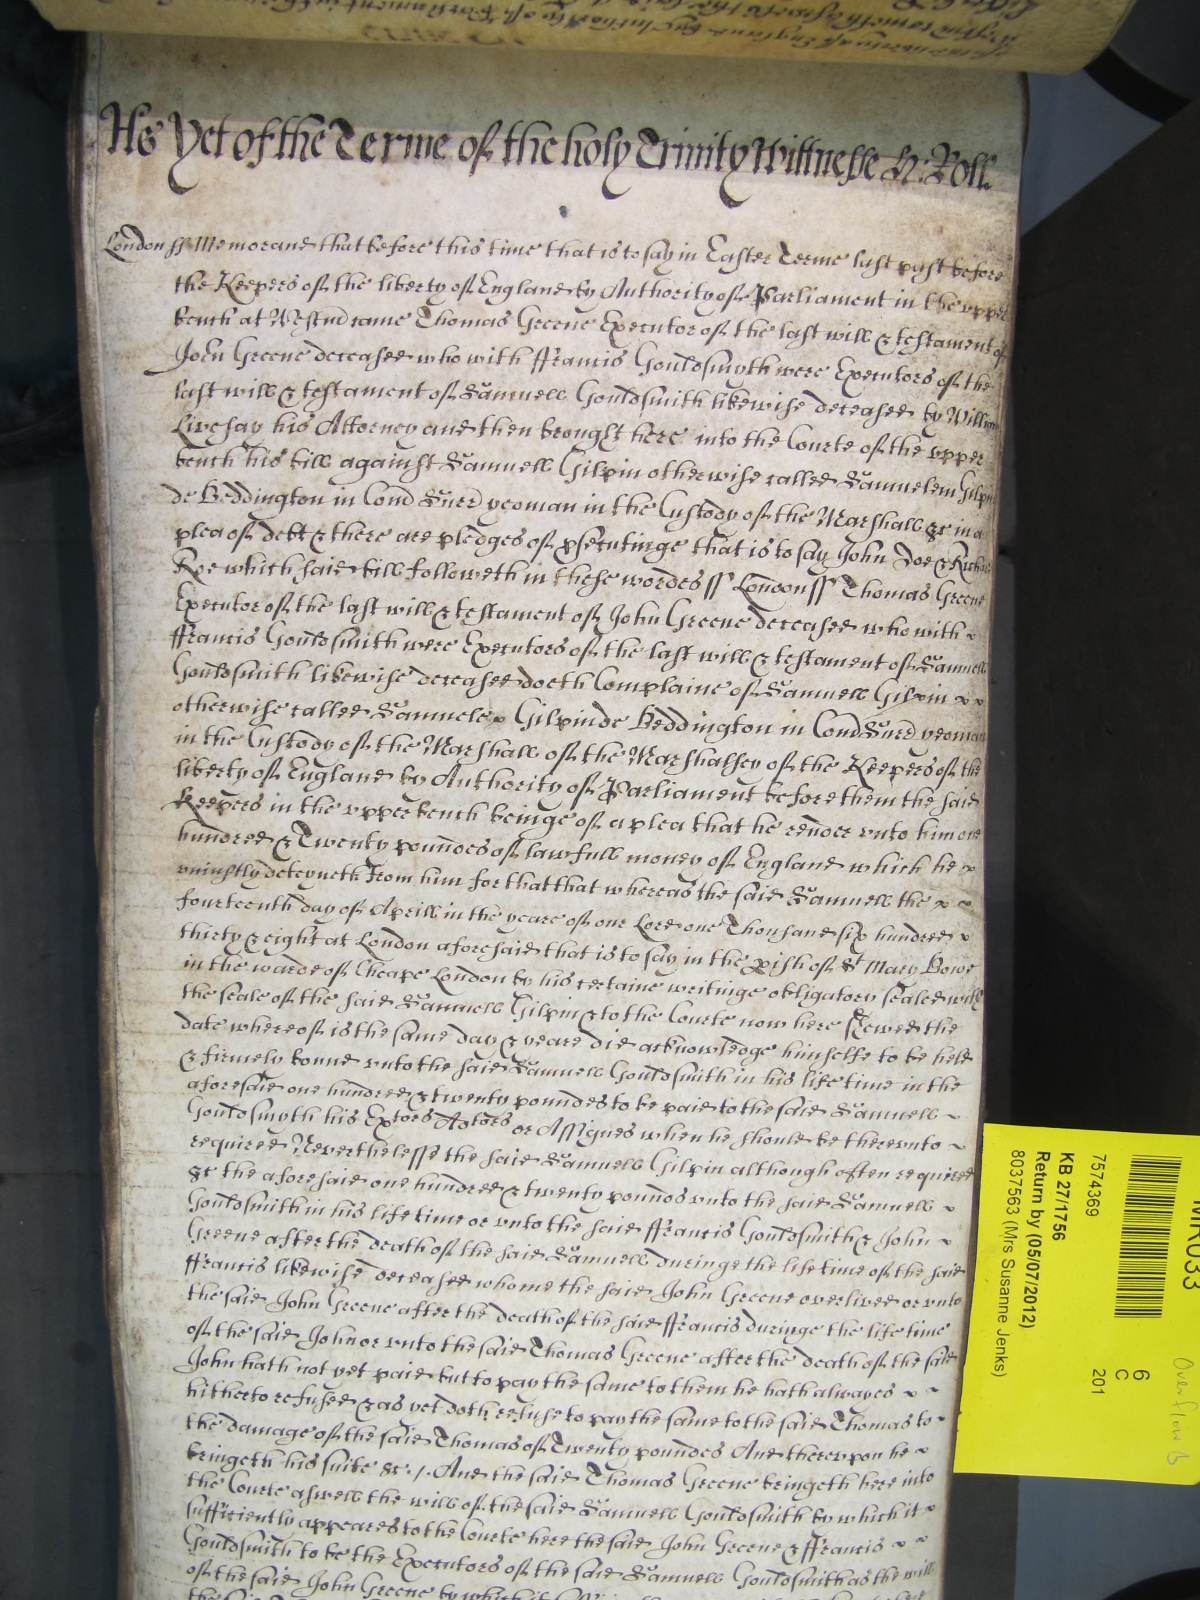 As Yet of the Terme of the holy Trinity Wittnesse H: Roll.
London ss Memorand that before this time that is to say in Easter Terme last past before
the Keepers of the liberty of England by Authority of Parliament in the vpper
bench at Westm came Thomas Greene Executor of the last will & testament of
John Greene deceased who with ffrancis Gouldsmyth were Executors of the
last will & testament of Samuell Gouldsmith likewise deceased by William
Livesay his Attorney and then brought here into the Courte of the vpper
bench his bill against Samuell Gilpin otherwise called Samuelem Gilpin
de Beddington in Com Surr yeoman in the Custody of the Marshall &c in a
plea of debt & there are pledges of psecutinge that is to say John Doe & Richard
Roe which said bill followeth in these wordes ss London ss Thomas Greene
Executor of the last will & testament of John Greene deceased who with
ffrancis Gouldsmith were Executors of the last will & testament of Samuell
Gouldsmith likewise deceased doeth Complaine of Samuell Gilpin
otherwise called Samuele Gilpin de Beddington in Com Surr yeoman
in the Custody of the Marshall of the Marshalsey of the Keepers of the
liberty of England by Authority of Parliament before them the said
Keepers in the vpper bench beinge of a plea that he render vnto him one
hundred & Twenty poundes of lawfull money of England which he
vniustly deteyneth from him for that that whereas the said Samuell the
fourteenth day of Aprill in the yeare of our Lord one Thousand six hundred
thirty & eight at London aforesaid that is to say in the pish of St Mary Bowe
in the warde of Cheape London by his certaine writinge obligatory sealed with
the seale of the said Samuell Gilpin & to the Courte now here shewed the
date whereof is the same day & yeare did acknowledge himselfe to be held
& firmely bound vnto the said Samuell Gouldsmith in his life time in the
aforesaid one hundred & twenty poundes to be paid to the said Samuell
Gouldsmyth his Extors Adtors or Assignes when he should be therevnto
required Neverthelesse the said Samuell Gilpin although often required
&c the aforesaid one hundred & twenty pounds vnto the said Samuell
Gouldsmith in his life time or vnto the said ffrancis Gouldsmith & John
Greene after the death of the said Samuell duringe the life time of the said
ffrancis likewise deceased whome the said John Greene overlived or vnto
the said John Greene after the death of the said ffrancis duringe the life time
of the said John or vnto the said Thomas Greene after the death of the said
John hath not yet paid but to pay the same to them he hath alwayes
hitherto refused & as yet doth refuse to pay the same to the said Thomas to
the damage of the said Thomas of Twenty poundes And therevpon he
bringeth his suite &c /. And the said Thomas Greene bringeth here into
the Courte aswell the will of the said Samuell Gouldsmith by which it
sufficiently appeares to the Courte here the said John Greene & ffrancis
Gouldsmith to be the Executors of the said Samuell Gouldsmith as the will
of the said John Greene by which it
7574369
KB 27/1756
Return by (05/07/2012)
8037563 (Mrs Susanne Jenks)
MR033
6
C
201
Overflow B